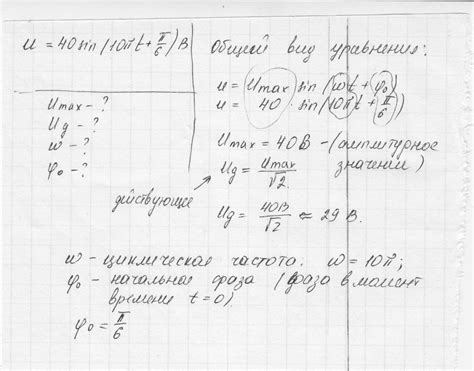 u = 40 sin (10πt + π/6) В
Umax - ?
Uд - ?
ω - ?
φ₀ - ?
Общий вид уравнения:
u = Umax sin (ωt + φ₀)
u = 40 · sin (10πt + π/6)
Umax = 40В - (амплитудное
значение)
Uд = Umax/√2
действующее
Uд = 40В/√2 ≈ 29 В.
ω - циклическая частота. ω = 10π;
φ₀ - начальная фаза (фаза в момент
времени t = 0).
φ₀ = π/6